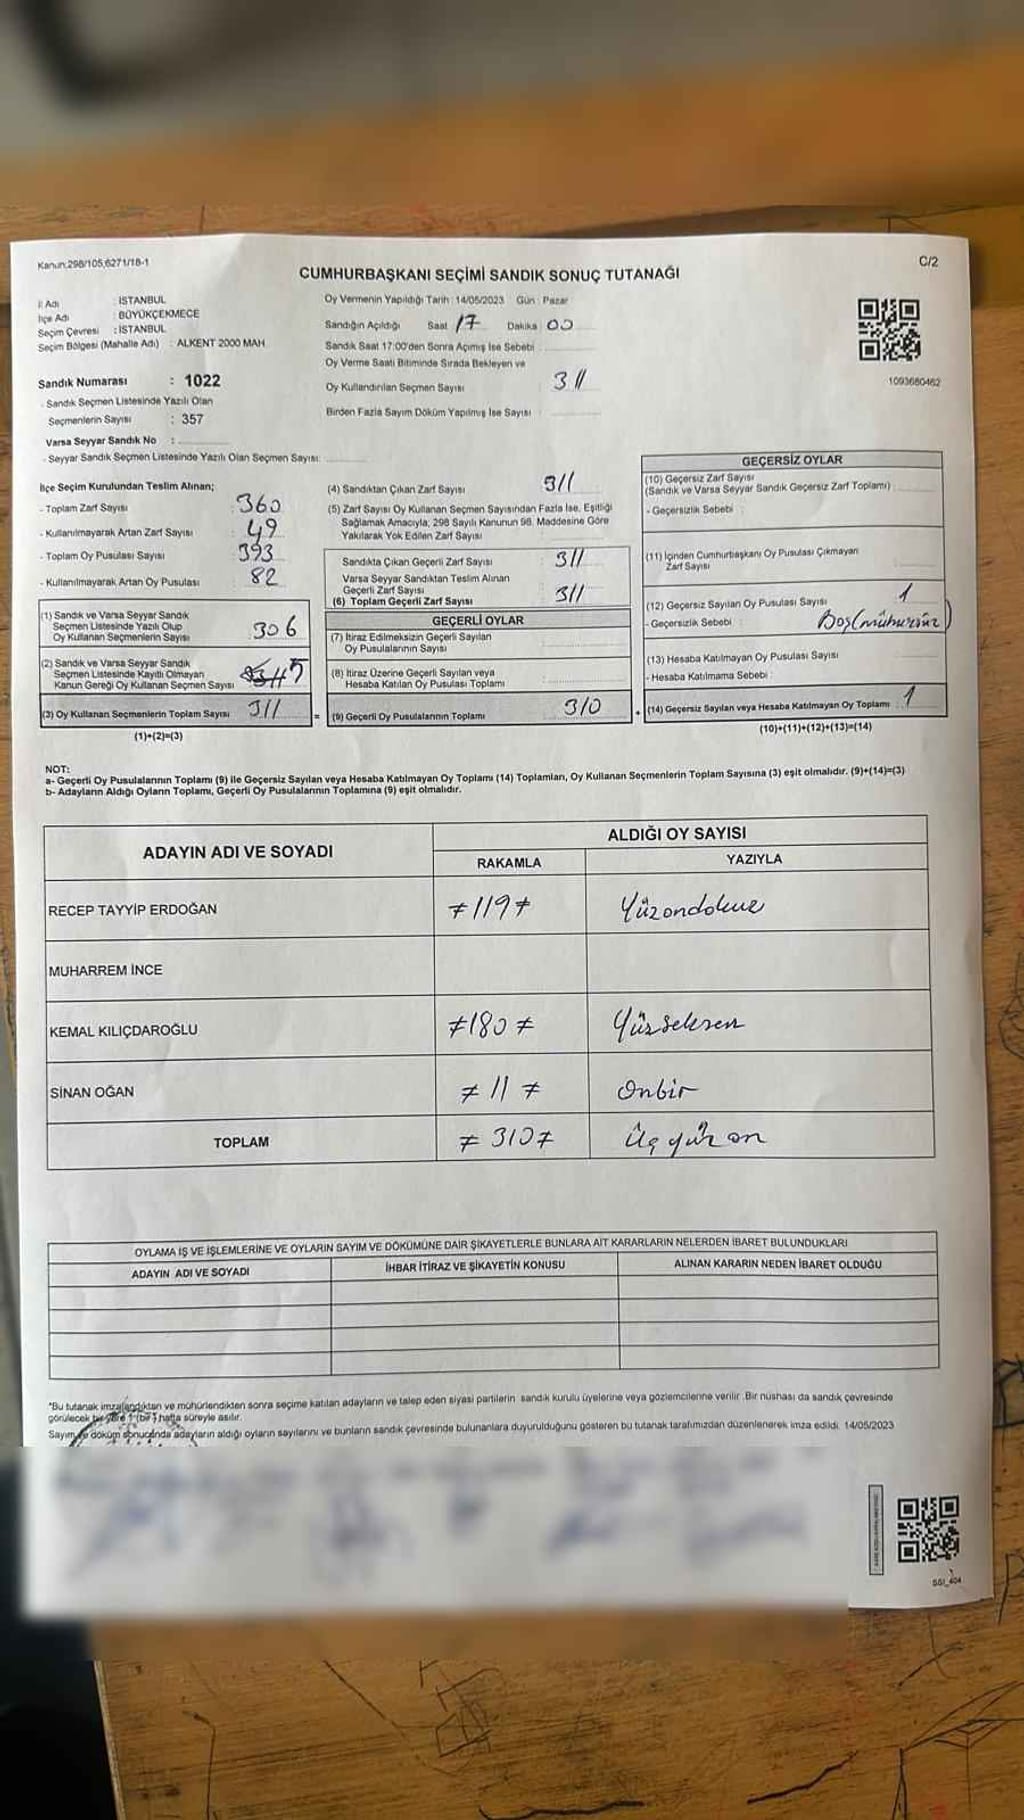 Kanun:298/105,6271/18-1
C/2
CUMHURBAŞKANI SEÇİMİ SANDIK SONUÇ TUTANAĞI
İl Adı : İSTANBUL
İlçe Adı : BÜYÜKÇEKMECE
Seçim Çevresi : İSTANBUL
Seçim Bölgesi (Mahalle Adı) : ALKENT 2000 MAH.
Sandık Numarası : 1022
- Sandık Seçmen Listesinde Yazılı Olan
Seçmenlerin Sayısı : 357
Varsa Seyyar Sandık No :
- Seyyar Sandık Seçmen Listesinde Yazılı Olan Seçmen Sayısı:
Oy Vermenin Yapıldığı Tarih : 14/05/2023 Gün : Pazar
Sandığın Açıldığı Saat 17 Dakika 00
Sandık Saat 17:00'den Sonra Açımış İse Sebebi
Oy Verme Saati Bitiminde Sırada Bekleyen ve
Oy Kullandırılan Seçmen Sayısı 311
Birden Fazla Sayım Döküm Yapılmış İse Sayısı :
1093680462
İlçe Seçim Kurulundan Teslim Alınan;
- Toplam Zarf Sayısı : 360
- Kullanılmayarak Artan Zarf Sayısı : 49
- Toplam Oy Pusulası Sayısı : 393
- Kullanılmayarak Artan Oy Pusulası : 82
(1) Sandık ve Varsa Seyyar Sandık
Seçmen Listesinde Yazılı Olup
Oy Kullanan Seçmenlerin Sayısı 306
(2) Sandık ve Varsa Seyyar Sandık
Seçmen Listesinde Kayıtlı Olmayan
Kanun Gereği Oy Kullanan Seçmen Sayısı 5
(3) Oy Kullanan Seçmenlerin Toplam Sayısı 311
(1)+(2)=(3)
(4) Sandıktan Çıkan Zarf Sayısı 311
(5) Zarf Sayısı Oy Kullanan Seçmen Sayısından Fazla İse, Eşitliği
Sağlamak Amacıyla; 298 Sayılı Kanunun 98. Maddesine Göre
Yakılarak Yok Edilen Zarf Sayısı
Sandıkta Çıkan Geçerli Zarf Sayısı 311
Varsa Seyyar Sandıktan Teslim Alınan
Geçerli Zarf Sayısı
(6) Toplam Geçerli Zarf Sayısı 311
GEÇERLİ OYLAR
(7) İtiraz Edilmeksizin Geçerli Sayılan
Oy Pusulalarının Sayısı
(8) İtiraz Üzerine Geçerli Sayılan veya
Hesaba Katılan Oy Pusulası Toplamı
= (9) Geçerli Oy Pusulalarının Toplamı 310
GEÇERSİZ OYLAR
(10) Geçersiz Zarf Sayısı
(Sandık ve Varsa Seyyar Sandık Geçersiz Zarf Toplamı)
- Geçersizlik Sebebi :
(11) İçinden Cumhurbaşkanı Oy Pusulası Çıkmayan
Zarf Sayısı
(12) Geçersiz Sayılan Oy Pusulası Sayısı 1
- Geçersizlik Sebebi : Boş(mühürsüz)
(13) Hesaba Katılmayan Oy Pusulası Sayısı
- Hesaba Katılmama Sebebi :
+ (14) Geçersiz Sayılan veya Hesaba Katılmayan Oy Toplamı 1
(10)+(11)+(12)+(13)=(14)
NOT:
a- Geçerli Oy Pusulalarının Toplamı (9) ile Geçersiz Sayılan veya Hesaba Katılmayan Oy Toplamı (14) Toplamları, Oy Kullanan Seçmenlerin Toplam Sayısına (3) eşit olmalıdır. (9)+(14)=(3)
b- Adayların Aldığı Oyların Toplamı, Geçerli Oy Pusulalarının Toplamına (9) eşit olmalıdır.
ADAYIN ADI VE SOYADI ALDIĞI OY SAYISI
RAKAMLA YAZIYLA
RECEP TAYYİP ERDOĞAN ≠119≠ Yüzondokuz
MUHARREM İNCE
KEMAL KILIÇDAROĞLU ≠180≠ Yüzseksen
SİNAN OĞAN ≠11≠ Onbir
TOPLAM ≠310≠ Üç yüz on
OYLAMA İŞ VE İŞLEMLERİNE VE OYLARIN SAYIM VE DÖKÜMÜNE DAİR ŞİKAYETLERLE BUNLARA AİT KARARLARIN NELERDEN İBARET BULUNDUKLARI
ADAYIN ADI VE SOYADI İHBAR İTİRAZ VE ŞİKAYETİN KONUSU ALINAN KARARIN NEDEN İBARET OLDUĞU
*Bu tutanak imzalandıktan ve mühürlendikten sonra seçime katılan adayların ve talep eden siyasi partilerin sandık kurulu üyelerine veya gözlemcilerine verilir. Bir nüshası da sandık çevresinde
görülecek bir yere 1 (bir) hafta süreyle asılır.
Sayım ve döküm sonucunda adayların aldığı oyların sayılarını ve bunların sandık çevresinde bulunanlara duyurulduğunu gösteren bu tutanak tarafımızdan düzenlenerek imza edildi. 14/05/2023